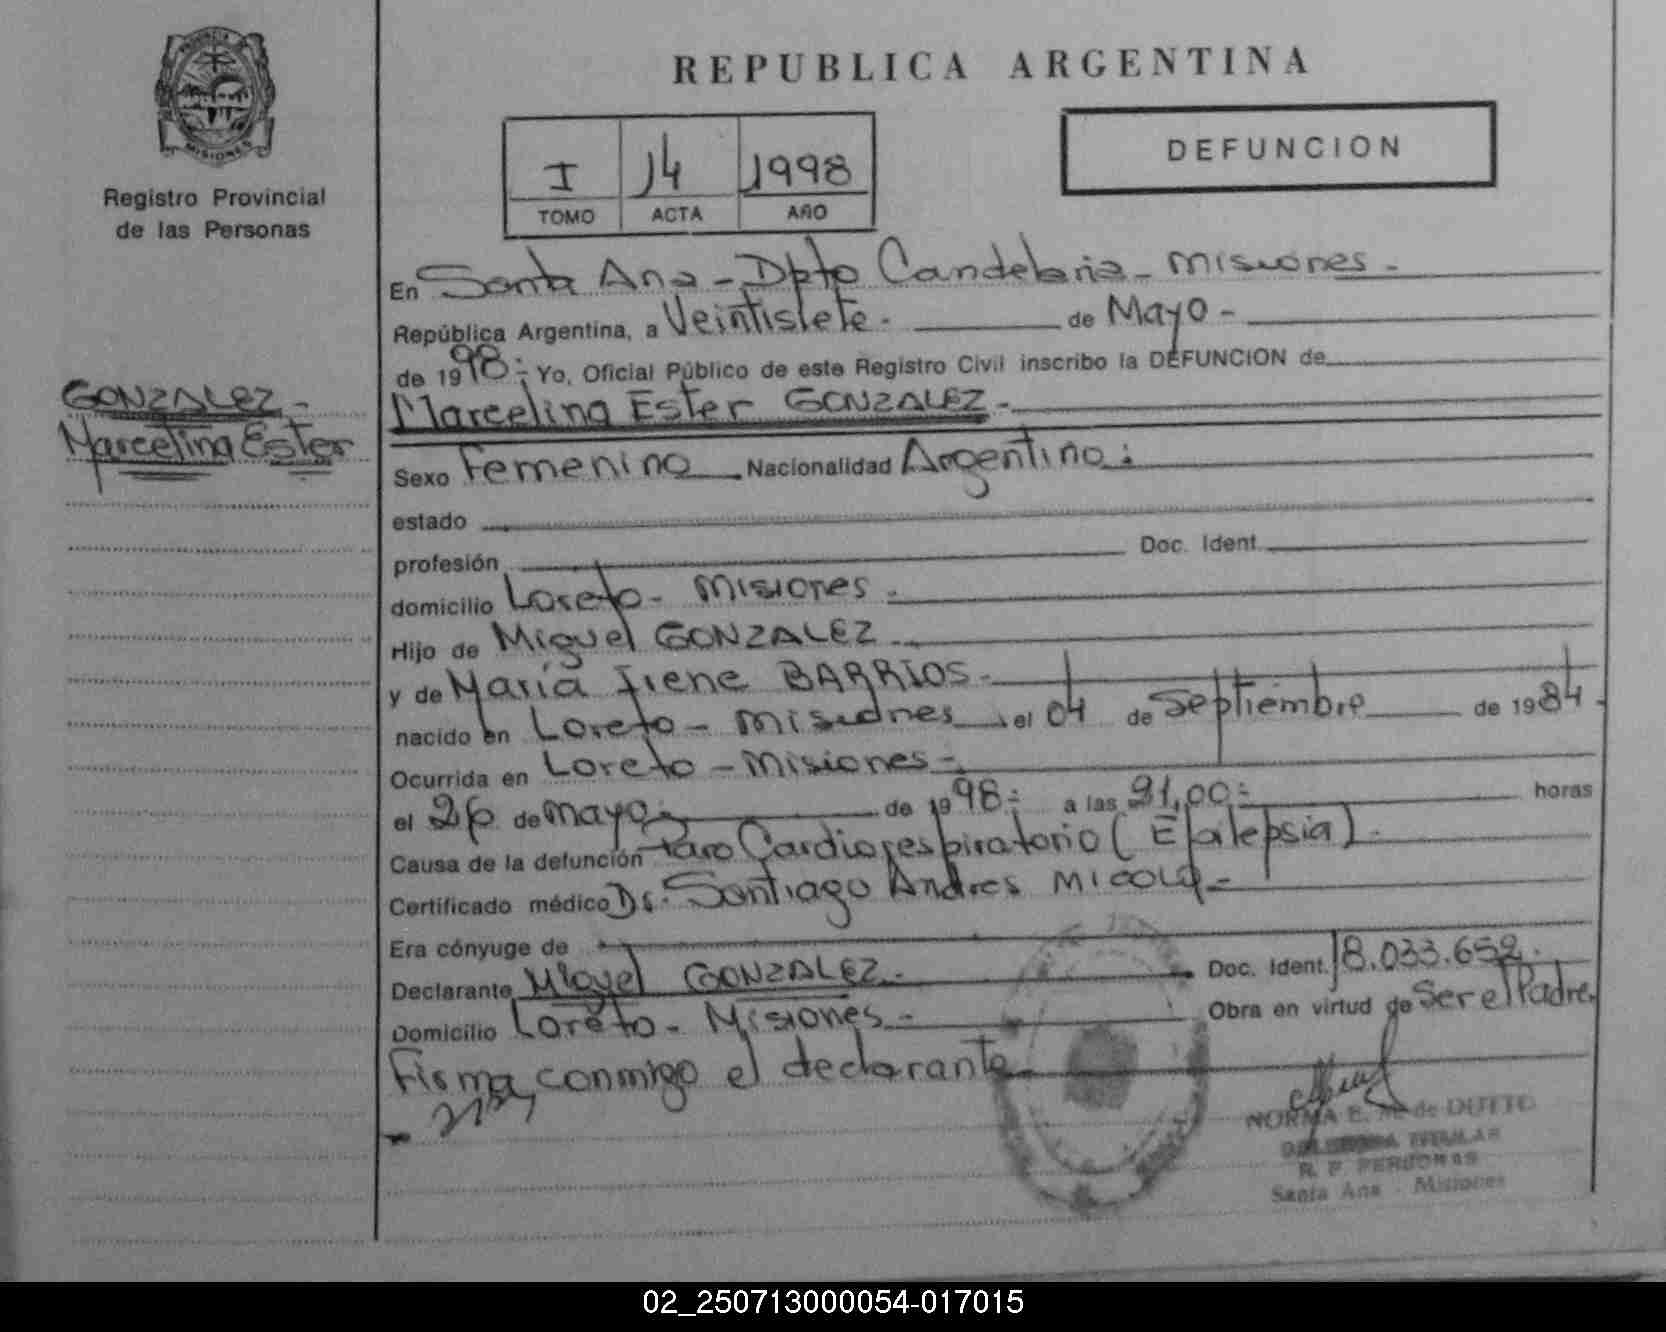 PROVINCIA DE
MISIONES
Registro Provincial
de las Personas
GONZALEZ -
Marcelina Ester
REPUBLICA ARGENTINA
I 14 1998
TOMO ACTA AÑO
DEFUNCION
En Santa Ana - Dpto Candelaria - Misiones -
República Argentina, a Veintisiete - de Mayo -
de 1998 - Yo, Oficial Público de este Registro Civil inscribo la DEFUNCION de
Marcelina Ester GONZALEZ -
Sexo Femenino Nacionalidad Argentino
estado
profesión Doc. Ident.
domicilio Loreto - Misiones -
Hijo de Miguel GONZALEZ -
y de María Irene BARRIOS -
nacido en Loreto - Misiones el 04 de Septiembre de 1984 -
Ocurrida en Loreto - Misiones -
el 26 de mayo de 1998 - a las 21,00 - horas
Causa de la defunción Paro Cardiorespiratorio (Epilepsia) -
Certificado médico Dr. Santiago Andres
Era cónyuge de
Declarante Miguel GONZALEZ - Doc. Ident. 18.033.652 -
Domicilio Loreto - Misiones - Obra en virtud de Ser el Padre
Firma conmigo el declarante
NORMA E. M. de DUTTO
TITULAR
R. P. PERSONAS
Santa Ana - Misiones
02_250713000054-017015